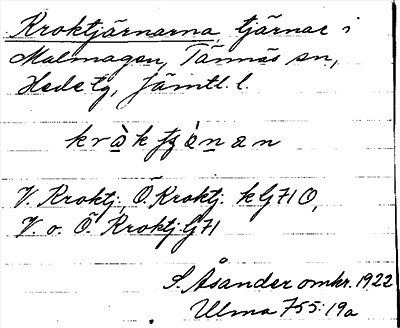 Kroktjärnarna, tjärnar i
Malmagen, Tännäs sn,
Hede tg, Jämtl. l.
V. Kroktj., Ö. Kroktj. kG71O,
V. o. Ö. Kroktj. G71
S. Åsander omkr. 1922
Ulma 755:19a